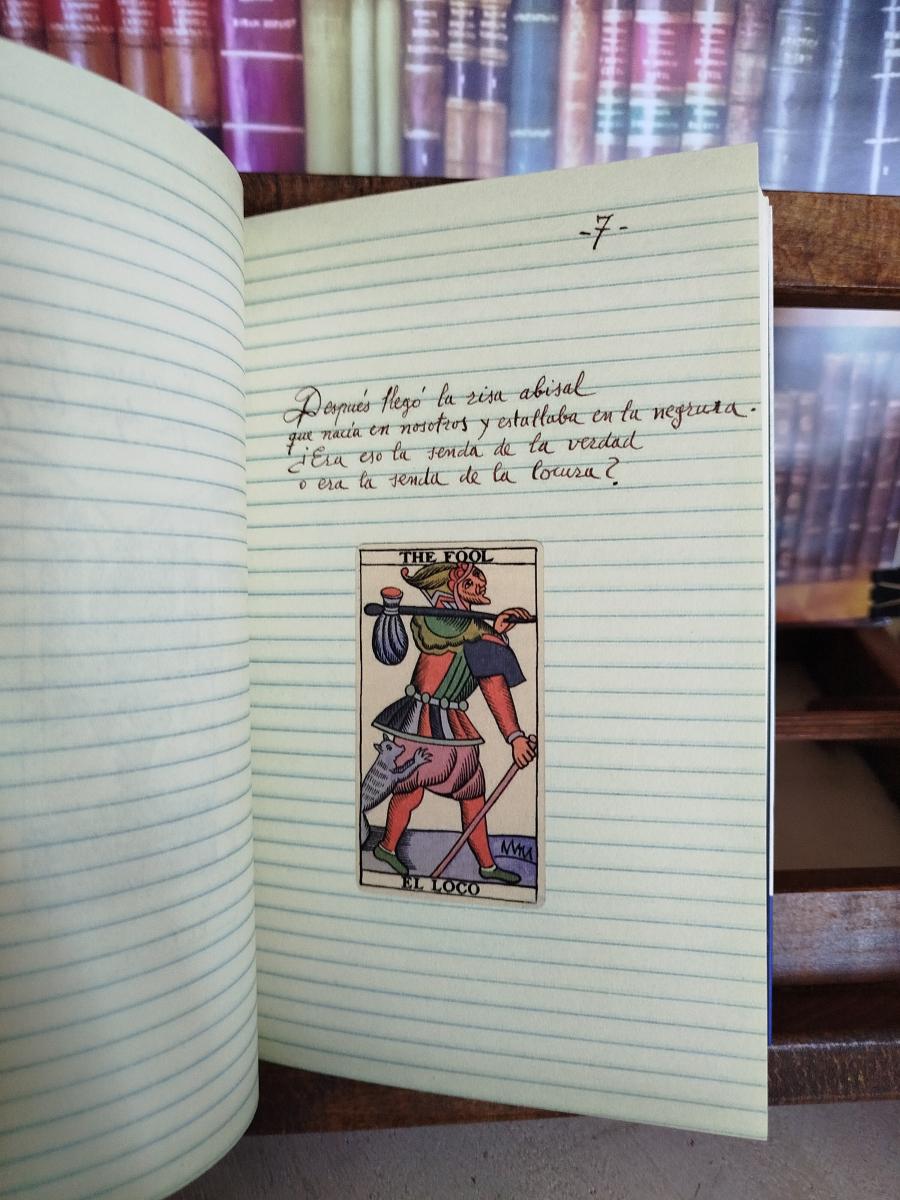 -7-
Después llegó la risa abisal
que nacía en nosotros y estallaba en la negrura.
¿Era eso la senda de la verdad
o era la senda de la locura?
THE FOOL
EL LOCO